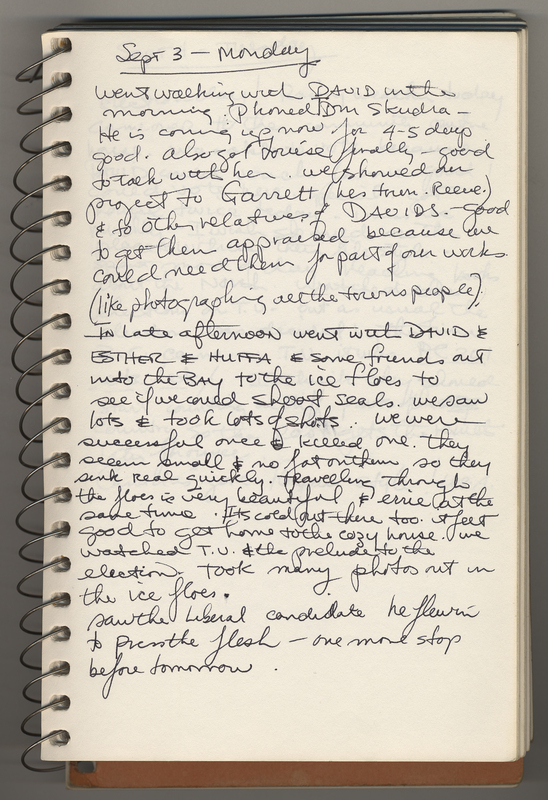 Sept 3 - Monday
Went walking with DAVID in the
morning. Phoned Dm Skudra -
He is coming up now for 4-5 days
good. also got Louise finally - good
to talk with her. we showed our
project to Garrett (hes town Reeve.)
& to other relatives of DAVIDS. - good
to get them appraised because we
could need them for part of our works.
(like photographing all the townspeople).
In late afternoon went with DAVID &
ESTHER & HUFFA & some friends out
into the BAY to the ice floes to
see if we could shoot seals. we saw
lots & took lots of shots. we were
successful once & killed one. they
seem small & no fat on them so they
sink real quickly. travelling through
the floes is very beautiful & errie at the
same time. Its cold out there too. it feet
good to get home to the cozy house. we
watched T.V. & the prelude to the
election. took many photos out in
the ice floes.
saw the Liberal candidate he flew in
to press the flesh - one more stop
before tomorrow.